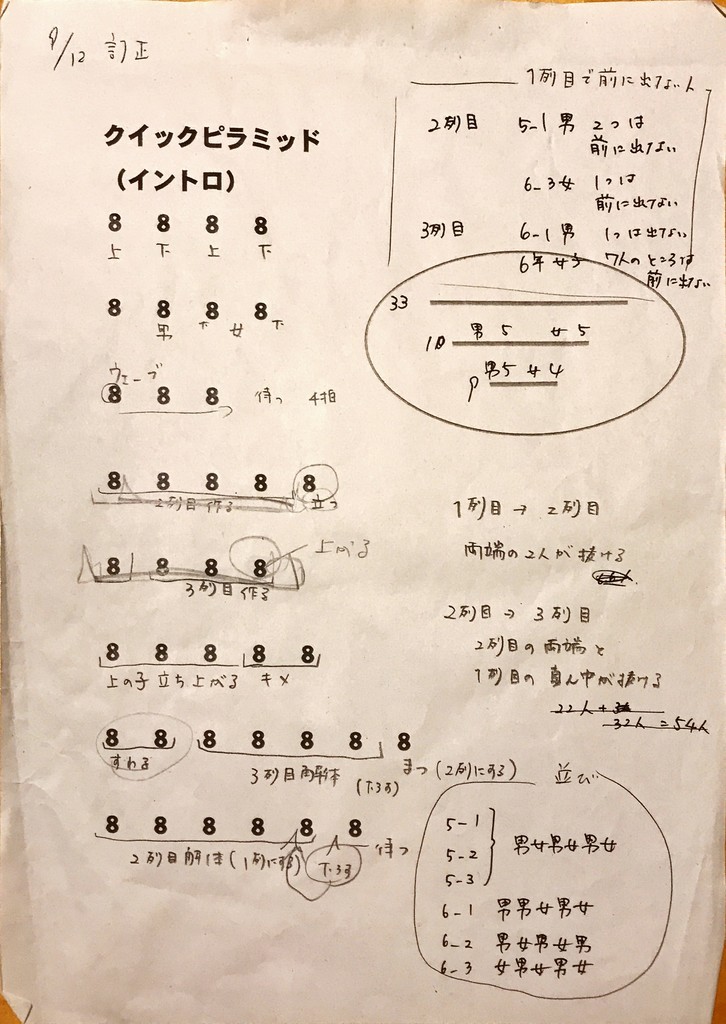 9/12 訂正
クイックピラミッド
(イントロ)
8 8 8 8
上 下 上 下
8 8 8 8
男 下 女 下
ウェーブ
8 8 8 待つ 4拍
8 8 8 8 8
2列目作る 立つ
8 8 8 8 上がる
3列目作る
8 8 8 8 8
上の子立ち上がる キメ
8 8 8 8 8 8 8
すわる 3列目解体 (下ろす) まつ(2列にする)
8 8 8 8 8 8
2列目解体(1列にする) 下ろす 待つ
1列目で前に出ない人
2列目 5-1男 2つは
前に出ない
6-3女 1つは
前に出ない
3列目 6-1男 1つは出ない
6年女子 7人のところは
前に出ない
33
10 男5 女5
9 男5 女4
1列目→2列目
両端の2人が抜ける
2列目→3列目
2列目の両端と
1列目の真ん中が抜ける
32人=54人
並び
5-1
5-2 男女男女男女
5-3
6-1 男男女男女
6-2 男女男女男
6-3 女男女男女